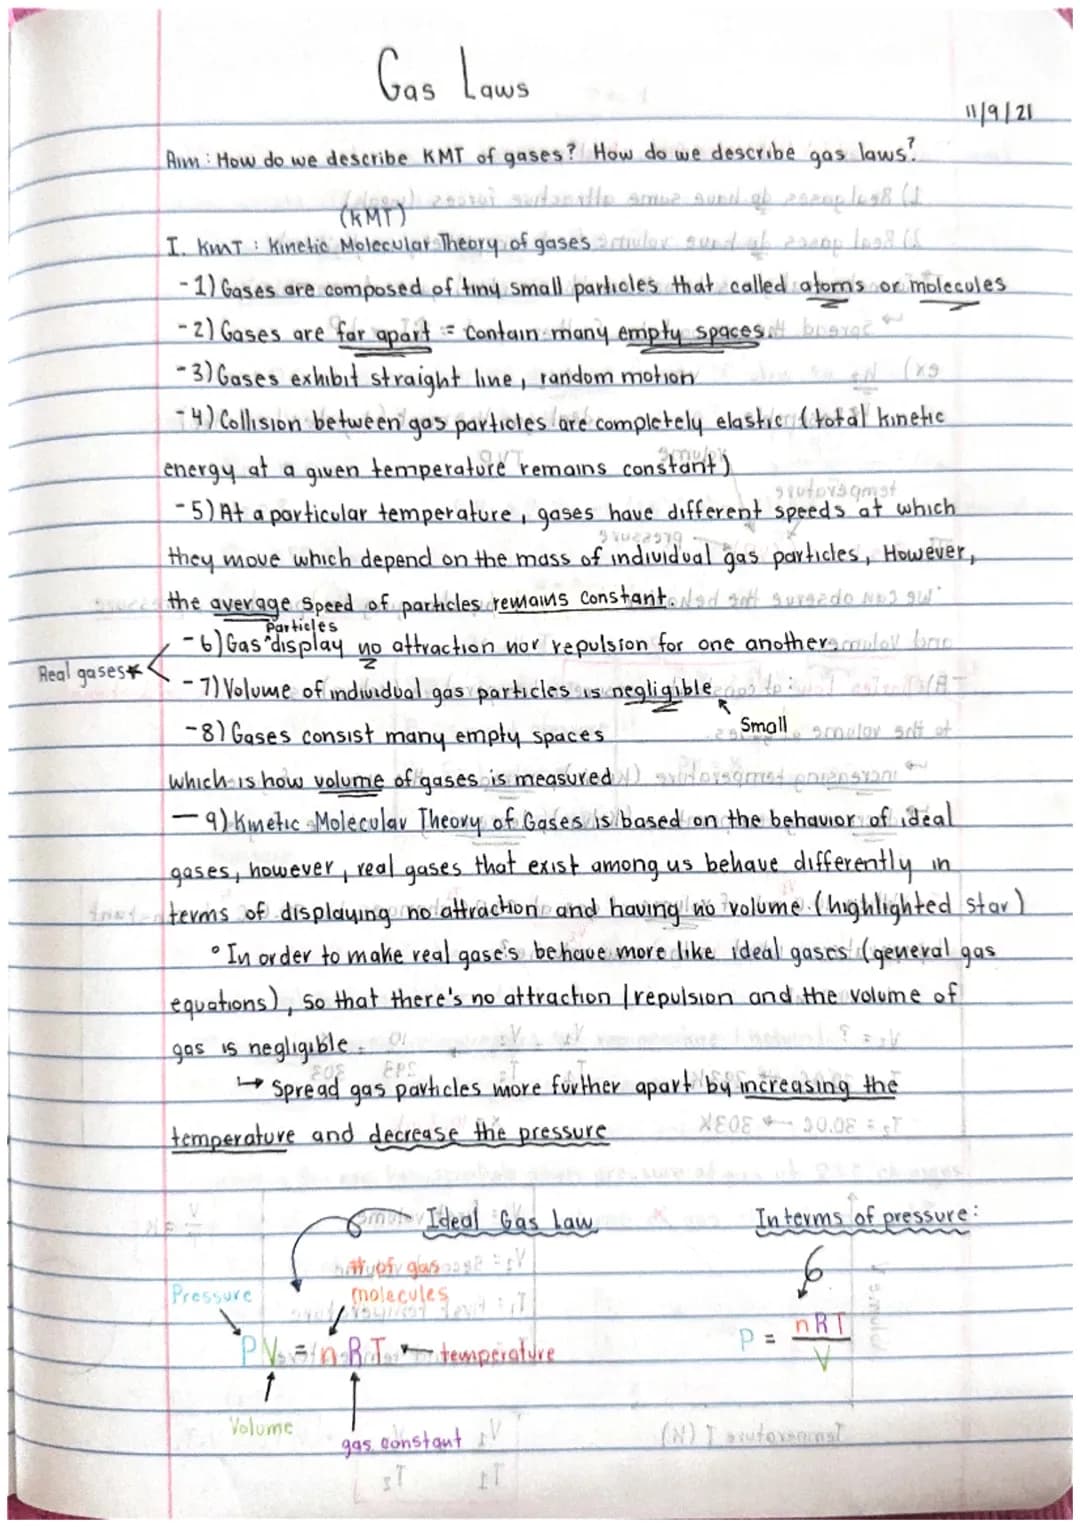 Gas Laws
11/9/21
Aim: How do we describe KMT of gases? How do we describe gas laws?
(KMT)
I. KMT: Kinetic Molecular Theory of gases
-1) Gases are composed of tiny small particles that called atoms or molecules
-2) Gases are far apart = Contain many empty spaces.
-3) Gases exhibit straight line, random motion
-4) Collision between gas particles are completely elastic (total kinetic
energy at a given temperature remains constant)
-5) At a particular temperature, gases have different speeds at which
they move which depend on the mass of individual gas particles, However,
the average speed of particles remains constant.
Particles
-6) Gas ^display no attraction nor repulsion for one another
Real gases*
-7) Volume of individual gas particles is negligible
Small
-8) Gases consist many empty spaces
which is how volume of gases is measured
-9) Kinetic Molecular Theory of Gases is based on the behavior of ideal
gases, however, real gases that exist among us behave differently in
terms of displaying no attraction and having no volume. (highlighted star)
• In order to make real gase's behave more like ideal gases (general gas
equations), so that there's no attraction/repulsion and the volume of
gas is negligible.
↳ Spread gas particles more further apart by increasing the
temperature and decrease the pressure
Ideal Gas Law
In terms of pressure:
# of gas
molecules
Pressure
PV = nRT ← temperature
P = nRT
V
Volume
gas constant